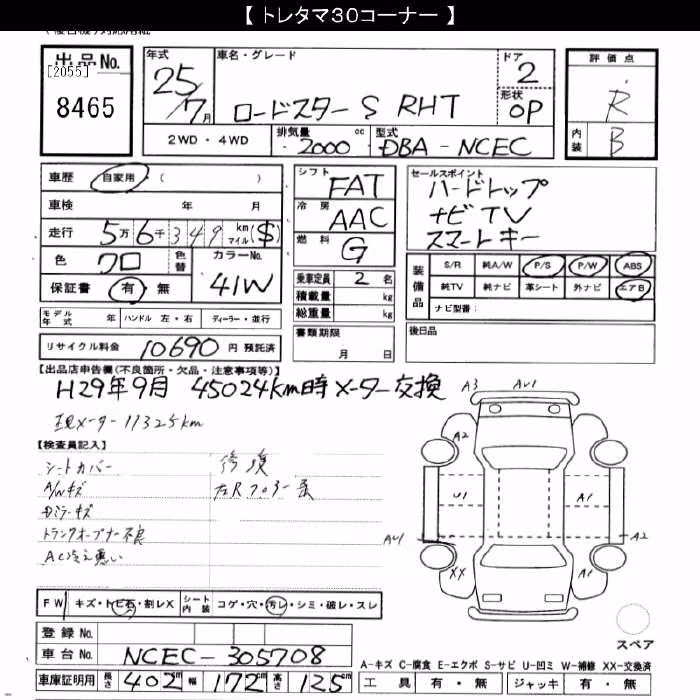 【トレタマ30コーナー】
出品No.
[2055]
8465
年式
25/7月
車名・グレード
ロードスター S RHT
ドア
2
形状
OP
評価点
R
内装
B
2WD・4WD
排気量
2000 cc
型式
DBA-NCEC
車歴 自家用 ( )
車検 年 月
走行 5万6千349 km マイル ($)
色 クロ 色替
カラーNo. 41W
保証書 有 無
シフト FAT
冷房 AAC
燃料 G
乗車定員 2 名
積載量 kg
総重量 kg
書類期限
月 日
セールスポイント
ハードトップ
ナビTV
スマートキー
装備品
S/R 純A/W P/S P/W ABS
純TV 純ナビ 革シート 外ナビ エアB
ナビ型番:
後日品
モデル年式 年 ハンドル 左・右 ディーラー・並行
リサイクル料金 10690 円 預託済
【出品店申告欄(不良箇所・欠品・注意事項等)】
H29年9月 45024km時メーター交換
現メーター11325km
【検査員記入】
シートカバー
A/Wキズ
トランクオープナー不良
AC冷え悪い
修復
A3 AU1
A2
U1 A1
AU1 A2
XX A1
スペア
FW キズ・トビ石・割レX
シート内装 コゲ・穴・汚レ・シミ・破レ・スレ
登録No.
車台No. NCEC-305708
車庫証明用 長さ 402 幅 172 高さ 125 cm
A-キズ C-腐食 E-エクボ S-サビ U-凹ミ W-補修 XX-交換済
工具 有・無 ジャッキ 有・無